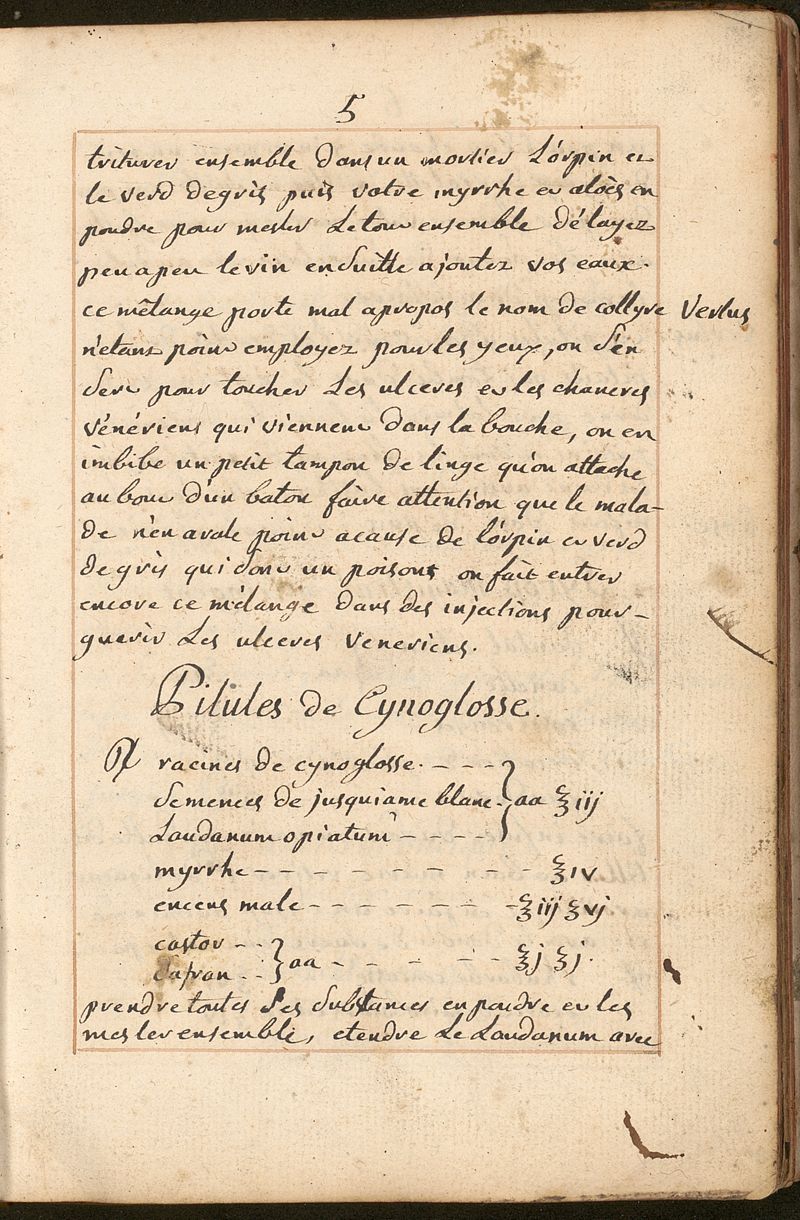 5
triturer ensemble dans un mortier L'orpin et
le verd degris puis votre myrrhe et aloès en
poudre pour mesler Le tout ensemble délayez
peu a peu le vin enduitte ajoutez vos eaux.
ce mêlange porte mal apropos le nom de collyre Vertus
n'etant point employez pour les yeux, on s'en
sert pour toucher Les ulceres et les chancres
vénériens qui viennent dans la bouche, on en
imbibe un petit tampon de linge qu'on attache
au bout d'un baton faire attention que le mala-
de n'en avale point acause de l'orpin et verd
de gris qui sont un poisons on fait entrer
encore ce mélange dans des injections pour-
guerir Les ulceres Veneriens.
Pilules de Cynoglosse.
℞ racines de cynoglosse. - - - -
semences de jusquiame blanc. } aa ℥iij
Laudanum opiatum - - - -
myrrhe - - - - - - - - ℥iv
encens male - - - - - - - ℥iij ℥vj
castor - - -
safran - - } aa - - - - - ℥j ℥j.
prendre toutes Les substances en poudre et les
mesler ensemble, etendre Le Laudanum avec